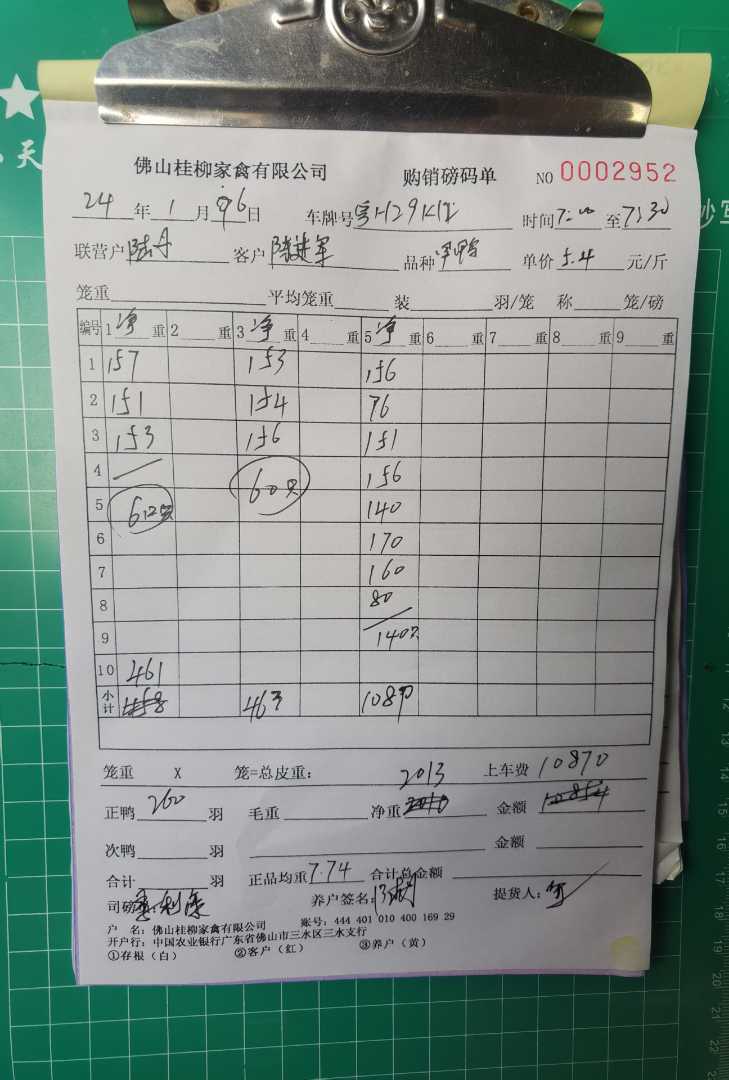 佛山桂柳家禽有限公司 购销磅码单 NO 0002952
24年1月 6日 车牌号 H29K 时间7:00至7:30
联营户 客户陈进军 品种 单价5.4元/斤
笼重 平均笼重 装 羽/笼 称 笼/磅
编号 1净重 2 重 3净重 4 重 5净重 6 重 7 重 8 重 9 重
1 157 153 156
2 151 154 76
3 153 156 151
4 156
5 60只 140
6 170
7 160
8 80
9 140只
10 461
小计 463 1089
笼重 X 笼=总皮重: 2013 上车费 10870
正鸭 260 羽 毛重 净重 2010 金额 10854
次鸭 羽 金额
合计 羽 正品均重 7.74 合计总金额
司磅 养户签名: 提货人:
户 名: 佛山桂柳家禽有限公司 账号: 444 401 010 400 169 29
开户行: 中国农业银行广东省佛山市三水区三水支行
①存根(白) ②客户(红) ③养户(黄)